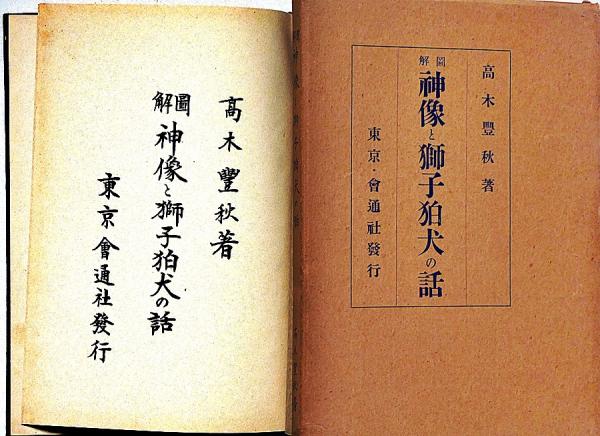 高木豐秋著
圖解
神像と獅子狛犬の話
東京會通社發行
高木豐秋著
圖解
神像と獅子狛犬の話
東京・會通社發行